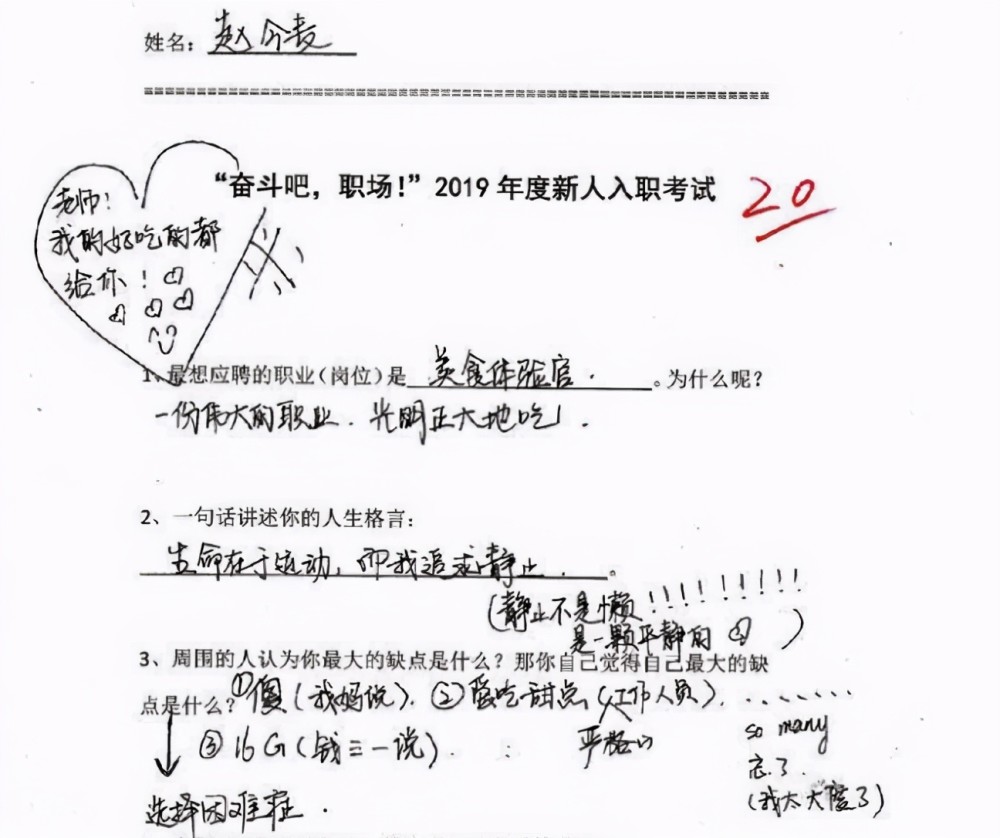 姓名：赵今麦
“奋斗吧，职场！”2019 年度新人入职考试
20
老师！
我的好吃的都
给你！
1、最想应聘的职业（岗位）是 美食体验官. 。为什么呢？
一份伟大的职业. 光明正大地吃！.
2、一句话讲述你的人生格言：
生命在于运动，而我追求静止. 。
(静止不是懒!!!!!!!!!
是一颗平静的 )
3、周围的人认为你最大的缺点是什么？那你自己觉得自己最大的缺
点是什么？①傻(我妈说). ②爱吃甜点(工作人员). .......
③16G(钱三一说). 严格的
so many
忘了.
(我太大度了)
选择困难症.